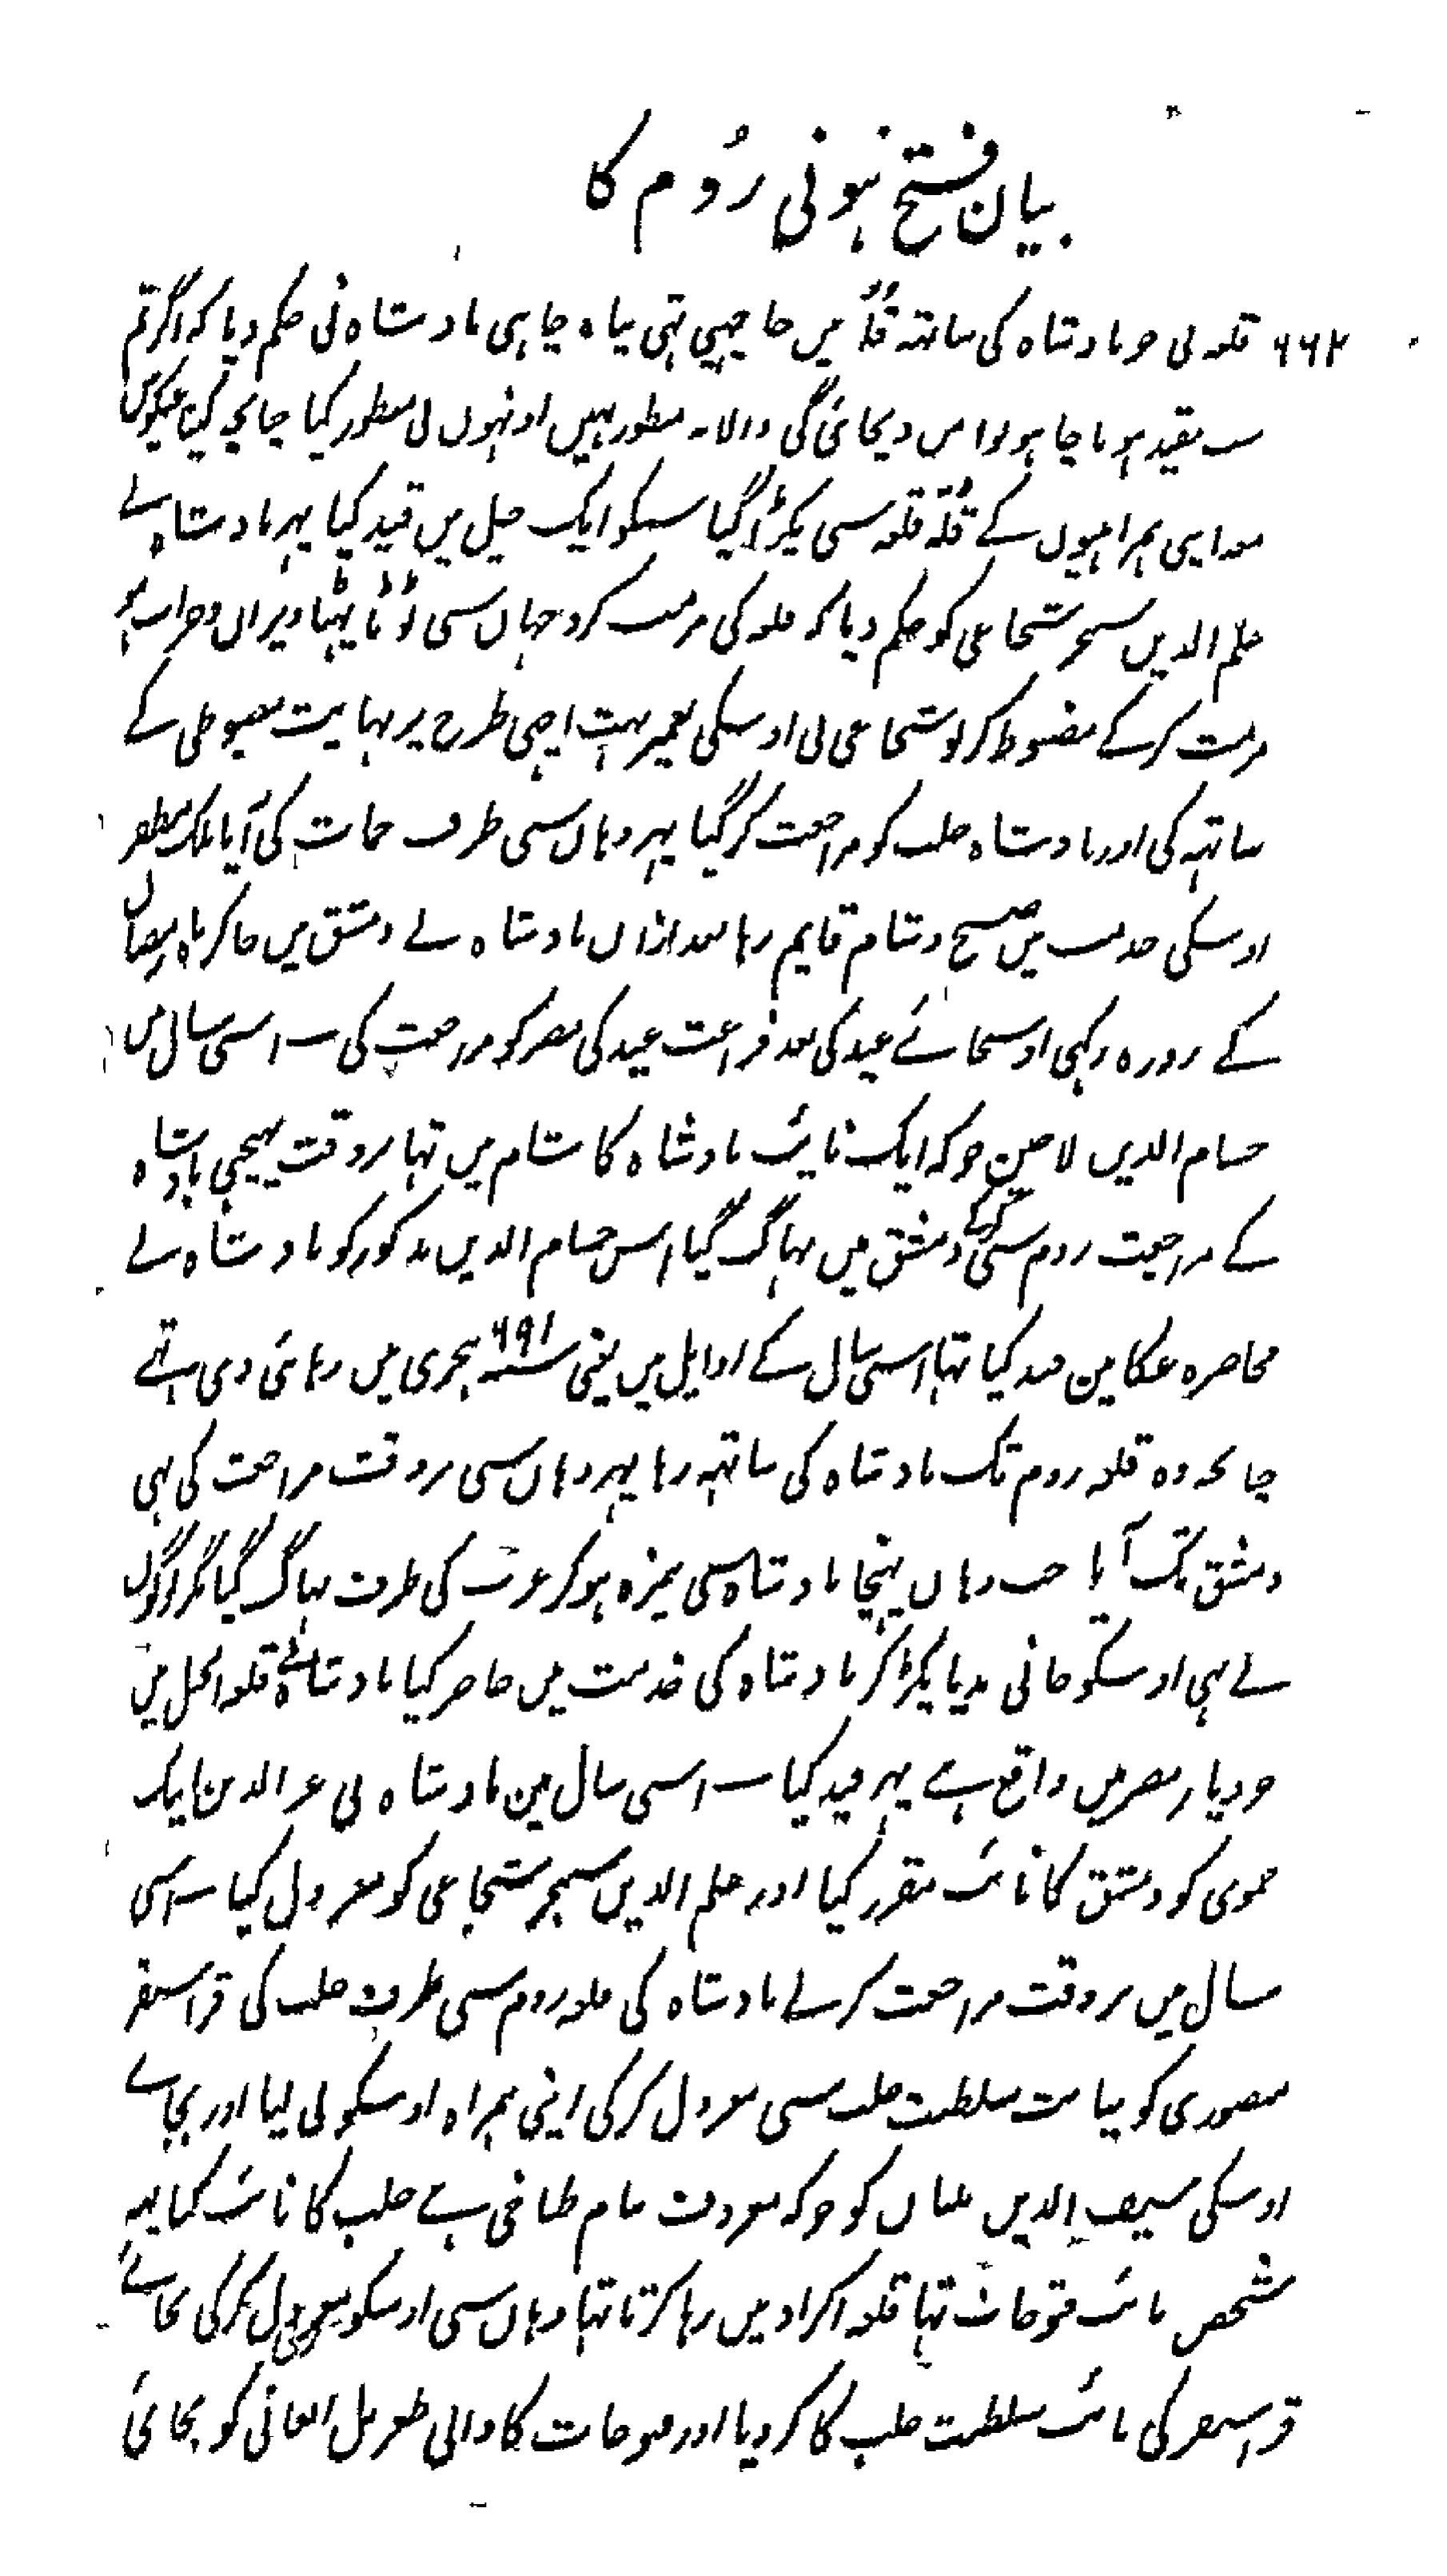 بیان فتح ہونی رُوم کا
۶۶۲ قلعہ نی جو بادشاہ کی ساتھ قُلّہ میں جا چھپی تہی پناہ چاہی بادشاہ نی حکم دیا کہ اگر تم
سب قید ہونا چاہو تو امن دیجائی گی والا نہ منظور نہیں اونہوں نی منظور کیا چنانچہ
معہ اپنی ہمراہیوں کے قُلّہ قلعہ سی پکڑا گیا سبکو ایک جیل میں قید کیا پہر بادشاہ نے
علم الدین سنجر شجاعی کو حکم دیا کہ قلعہ کی مرمت کرو جہاں سی ٹوٹا پہٹا ویران و خراب ہو
مرمت کرکے مضبوط کر لو شجاعی نی اوسکی تعمیر بہت اچہی طرح پر نہایت مضبوطی کے
ساتہہ کی اور بادشاہ حلب کو مراجعت کر گیا پہر وہاں سی طرف حمات کی آیا ملک مظفر
اوسکی خدمت میں صبح و شام قایم رہا بعد ازاں بادشاہ نے دمشق میں جا کر ماہ رمضان
کے روزہ رکہی اوسجائے عید کی بعد فراغت عید کی مصر کو مراجعت کی ـ اسی سال میں
حسام الدین لاجین جو کہ ایک نایب بادشاہ کا شام میں تہا بروقت پہنچی بادشاہ
کے مراجعت روم سی کرکے دمشق میں بہاگ گیا اس حسام الدین مذکور کو بادشاہ نے
محاصرہ عکا مین قید کیا تہا اسی سال کے اوایل میں یعنی سنہ ۶۹۱ ہجری میں رہائی دی تہے
چنانچہ وہ قلعہ روم تک بادشاہ کی ساتہہ رہا پہر وہاں سی بروقت مراجعت کی بہی
دمشق تک آیا جب وہاں پہنچا بادشاہ سی بمزہ ہو کر عرب کی طرف بہاگ گیا مگر لوگوں
نے بہی اوسکو جانی ندیا پکڑ کر بادشاہ کی خدمت میں حاضر کیا بادشاہ نے قلعہ الجبل میں
جو دیار مصر میں واقع ہے پہر قید کیا ـ اسی سال مین بادشاہ نی عز الدین ایبک
حموی کو دمشق کا نائب مقرر کیا اور علم الدین سنجر شجاعی کو معزول کیا ـ اسی
سال میں بروقت مراجعت کرنے بادشاہ کی قلعہ روم سی طرف حلب کی قراسنقر
منصوری کو نیابت سلطنت حلب سی معزول کرکی اپنی ہمراہ اوسکو لی لیا اور بجائے
اوسکی سیف الدین بلبان کو جو کہ معروف بنام طباخی ہے حلب کا نائب کیا یہہ
شخص نائب فتوحات تہا قلعہ اکراد میں رہا کرتا تہا وہاں سی اوسکو معزول کرکی بجائے
قراسنقر کی نائب سلطنت حلب کا کر دیا اور فتوحات کا والی طغریل ایغانی کو بجائی